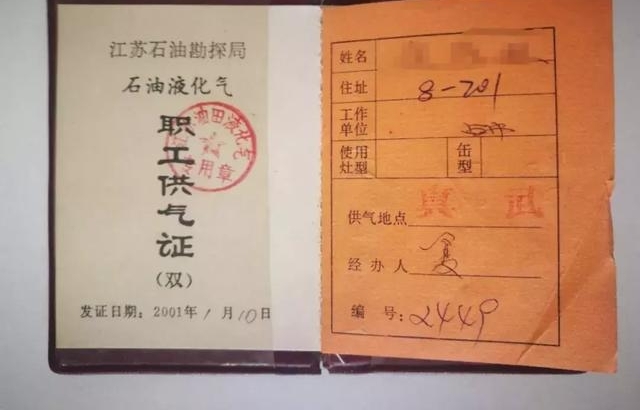 江苏石油勘探局
石油液化气
职工供气证
(双)
发证日期：2001年1月10日
油田液化气
专用章
姓名
住址 8-201
工作单位
使用灶型
缶型
供气地点 真武
经办人
编号：2449